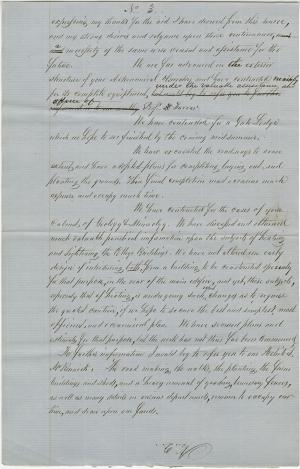 No 3.
expression, my thanks for the aid I have derived from this source,
and my strong desire and reliance upon their continuance,
of the same wise counsel and assistance for the
future. We are far advanced in the exterior
structure of your Astronomical Observatory and have contracted mainly
under the valuable assistance and
for its complete equipment,
advice of Prof. Farrar
We have contracted for a Gate Lodge
which we hope to see finished by the coming midsummer.
We have excavated the roadways to some
extent, and have adopted plans for completing, laying out, and
planting the grounds. Their final completion must occasion much
expense and occupy much time.
We have contracted for the cases of your
Cabinet of Geology & Mineralogy. We have digested and obtained
much valuable practical information upon the subjects of heating
and lighting the College Buildings. We have not altered our early
design of introducing both from a building to be constructed specially
for that purpose, in the rear of the main edifice, and yet, these subjects,
especially that of heating, is undergoing such changes as to require
the greatest caution, if we hope to secure the best and simplest, most
efficient, and economical plan. We have secured plans and
estimates for that purpose, but the work has not thus far been commenced.
For further information I would beg to refer you to our Architect
Mr Renwick. The road making, the walks, the planting, the Farm
buildings and sheds, and a heavy amount of grading, boundary fences,
as well as many details in various departments, remain to occupy our
time, and draw upon our funds.